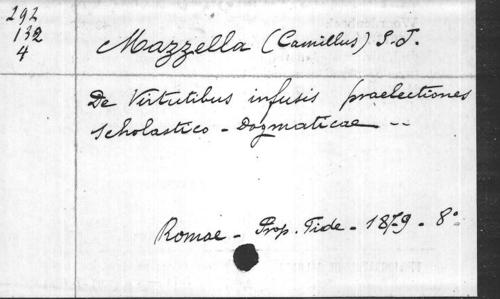 292
132
4
Mazzella (Camillus) S.J.
De Virtutibus infusis praelectiones
scholastico - Dogmaticae --
Romae - Prop. Fide - 1879 - 8º